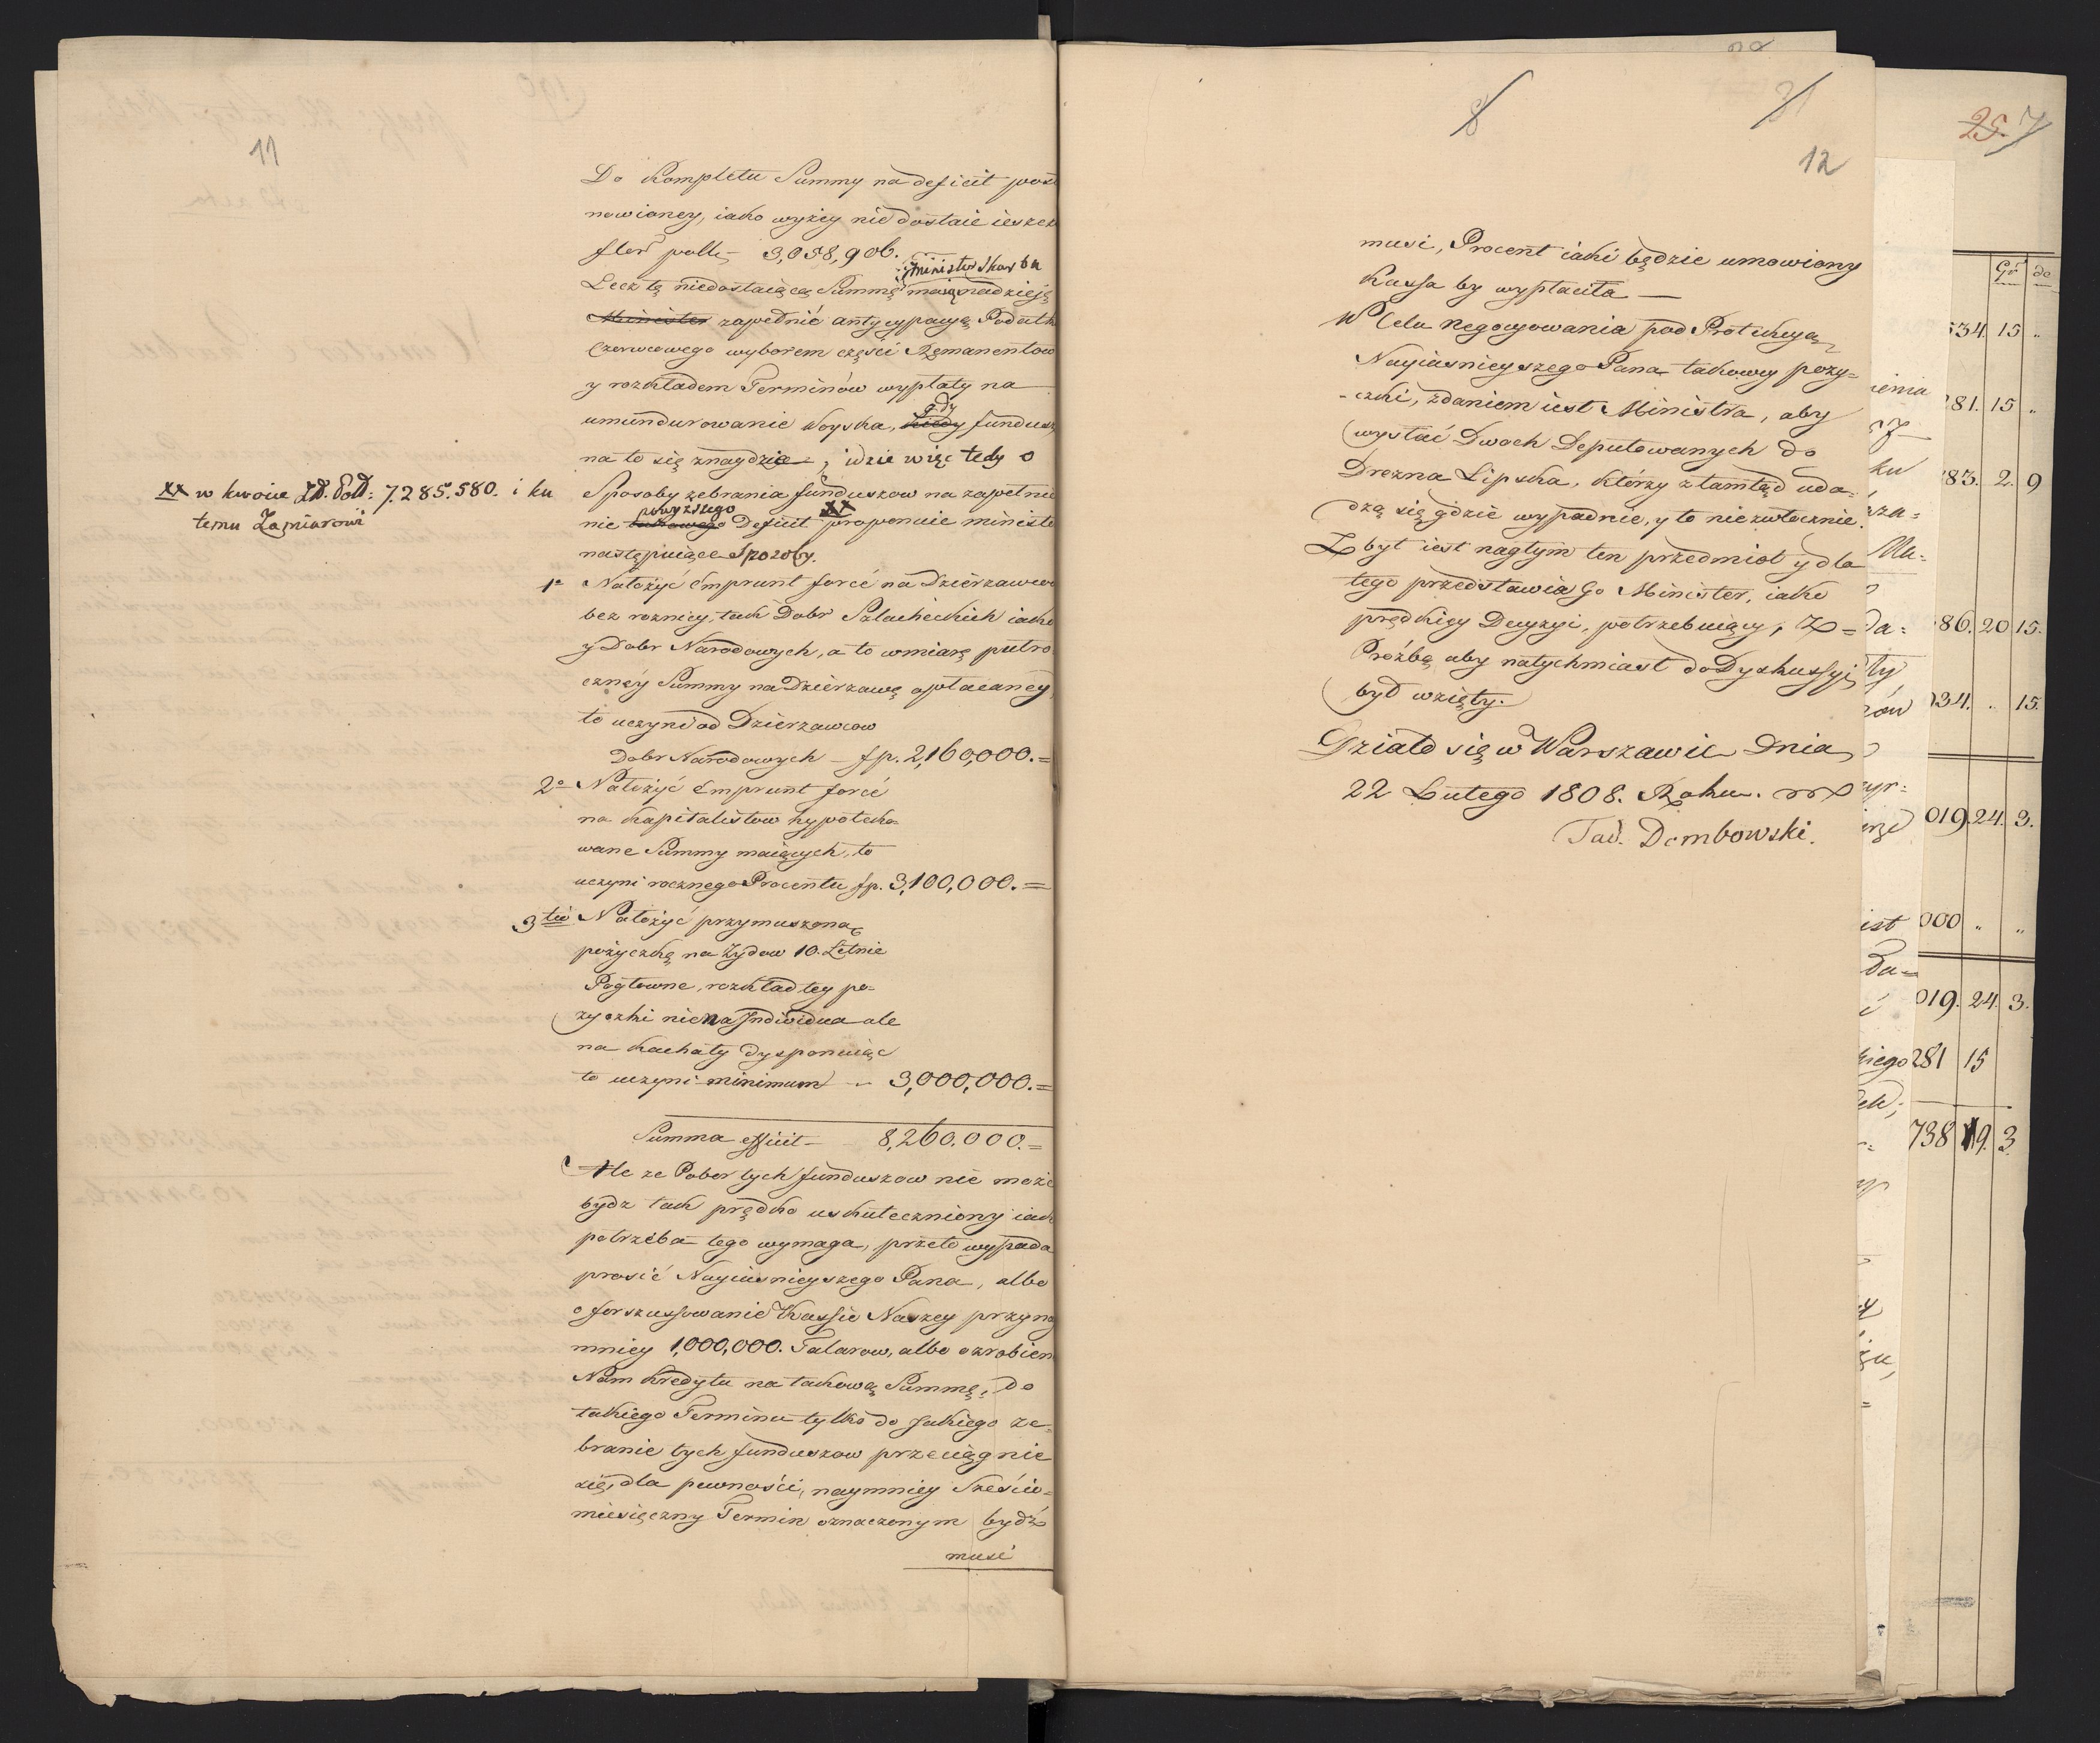 11
Do Kompletu Summy na deficit posta
nowioney, iako wyżey nie dostaie ieszcze
flor polk 3,058,906.
 minister Skarbu
Lecz tą niedostaiącą Summę ma nadzieję
Minister zapełnić antycypacyą Podatk
Czerwcowego wyborem części Remanentow
y rozkładem Terminów wypłaty na
gdy
umundurowanie Woyska, kiedy fundusz
na to się znaydzie, idzie więc tedy o
xx w kwocie Zł. Pol: 7.285.580. i ku
temu Zamiarowi
Sposoby zebrania funduszow na zapełnie
powyższego xx
nie takowego Deficit proponuie ministe
następuiące Sposoby.
1o Nałożyć Emprunt forcé na Dzierzawcow
bez roznicy, tak Dobr Szlacheckich iako
y Dobr Narodowych, a to w miarę pułro
czney Summy na Dzierzawę opłacaney,
to uczyni od Dzierzawcow
Dobr Narodowych — fp. 2,160,000.=
2o Nałożyć Emprunt forcé
na Kapitalistow hypoteko
wane Summy maiących, to
uczyni rocznego Procentu fp. 3,100,000.=
3tio Nałożyć przymuszoną
pożyczkę na Zydow 10. Letnie
Pogłowne, rozkład tey po=
zyczki nie na Individua ale
na Kachały dysponuiąc
to uczyni minimum — 3,000,000.=
Summa efficit — 8,260.000.=
Ale ze Pobor tych funduszow nie może
bydz tak prędko uskuteczniony iak
potrzeba tego wymaga, przeto wypada
prosić Nayiasnieyszego Pana, albo
o forszussowanie Kassie Naszey przyna
mniey 1,000,000. Talarow, albo o zrobien
Nam Kredytu na takową Summę, do
takiego Terminu tylko do jakiego ze=
branie tych funduszow przeciągnie
się, dla pewności, naymniey Sześcio=
miesięczny Termin oznaczonym bydź
musi
8
31
12
musi, Procent iaki będzie umowiony
Kassa by wypłaciła —
W Celu negocyowania pod Protekcyą
Nayiasnieyszego Pana takowey pozy=
=czki, zdaniem iest Ministra, aby
wysłać Dwoch Deputowanych do
Drezna Lipska, którzy ztamtąd uda=
dzą się gdzie wypadnie, y to niezwłocznie.
Zbyt iest nagłym ten przedmiot y dla
tego przedstawia Go Minister, iako
prędkiey Decyzyi, potrzebuiący, Z=
Prózbą aby natychmiast do Dyskussyi
był wzięty.
Działo się w Warszawie Dnia
22 Lutego 1808. Roku.
Tad. Dembowski.
25. 7
Gr de
534. 15 "
281. 15 "
83. 2. 9
86. 20 15.
034. . 15.
019. 24. 3.
000 " "
019. 24. 3.
281 15
738 19. 3